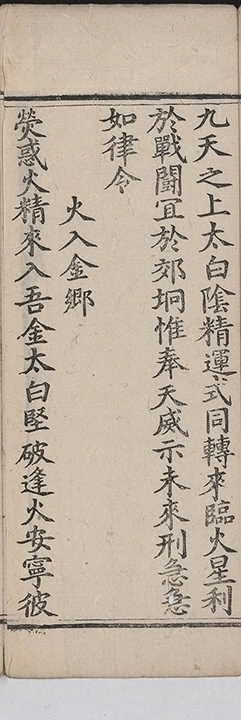 九天之上太白陰精運式同轉來臨火星利
於戰鬭冝於郊坰惟奉天威示未來刑急急
如律令
火入金鄉
熒惑火精來入吾金太白堅破逢火安寧彼